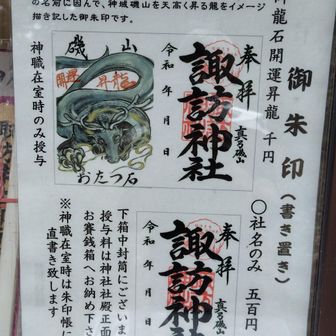 御朱印(書き置き)
龍石開運昇龍 千円
の名前に因んで、神域磯山を天高く昇る龍をイメージ
描き記した御朱印です。
奉拝
真る磯山
諏訪神社
令和 年 月 日
磯山
開運
昇龍
おたつ石
神職在室時のみ授与
〇社名のみ 五百円
奉拝
真る磯山
諏訪神
令和 年
下箱中封筒にございま
授与料は神社社殿正面
お賽銭箱へお納め下さ
※神職在室時は朱印帳に
直書き致します